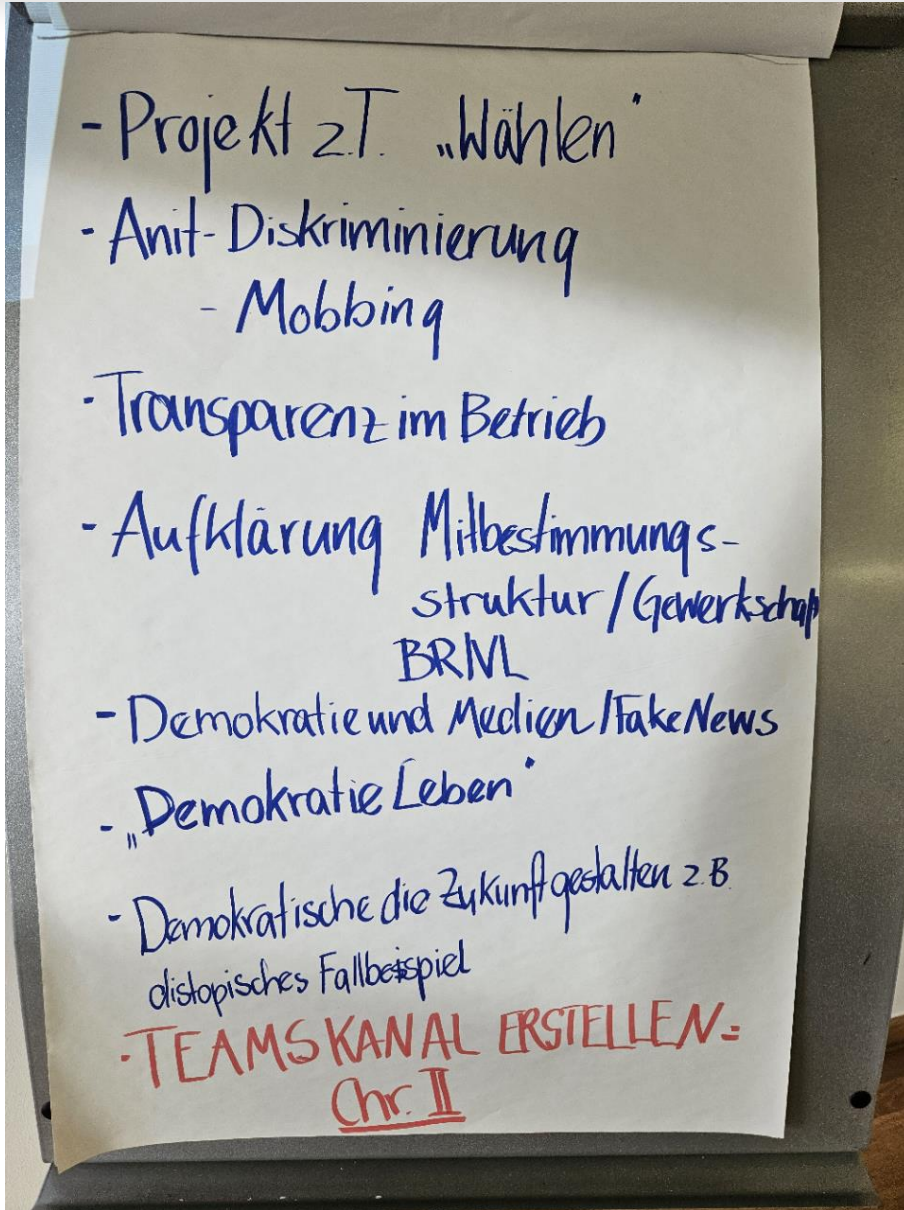 - Projekt z.T. „Wählen"
- Anit-Diskriminierung
- Mobbing
- Transparenz im Betrieb
- Aufklärung Mitbestimmungs-
struktur / Gewerkschaf
BR/VL
- Demokratie und Medien / Fake News
- „Demokratie Leben"
- Demokratische die Zukunft gestalten z.B.
distopisches Fallbeispiel
- TEAMS KANAL ERSTELLEN =
Chr. II